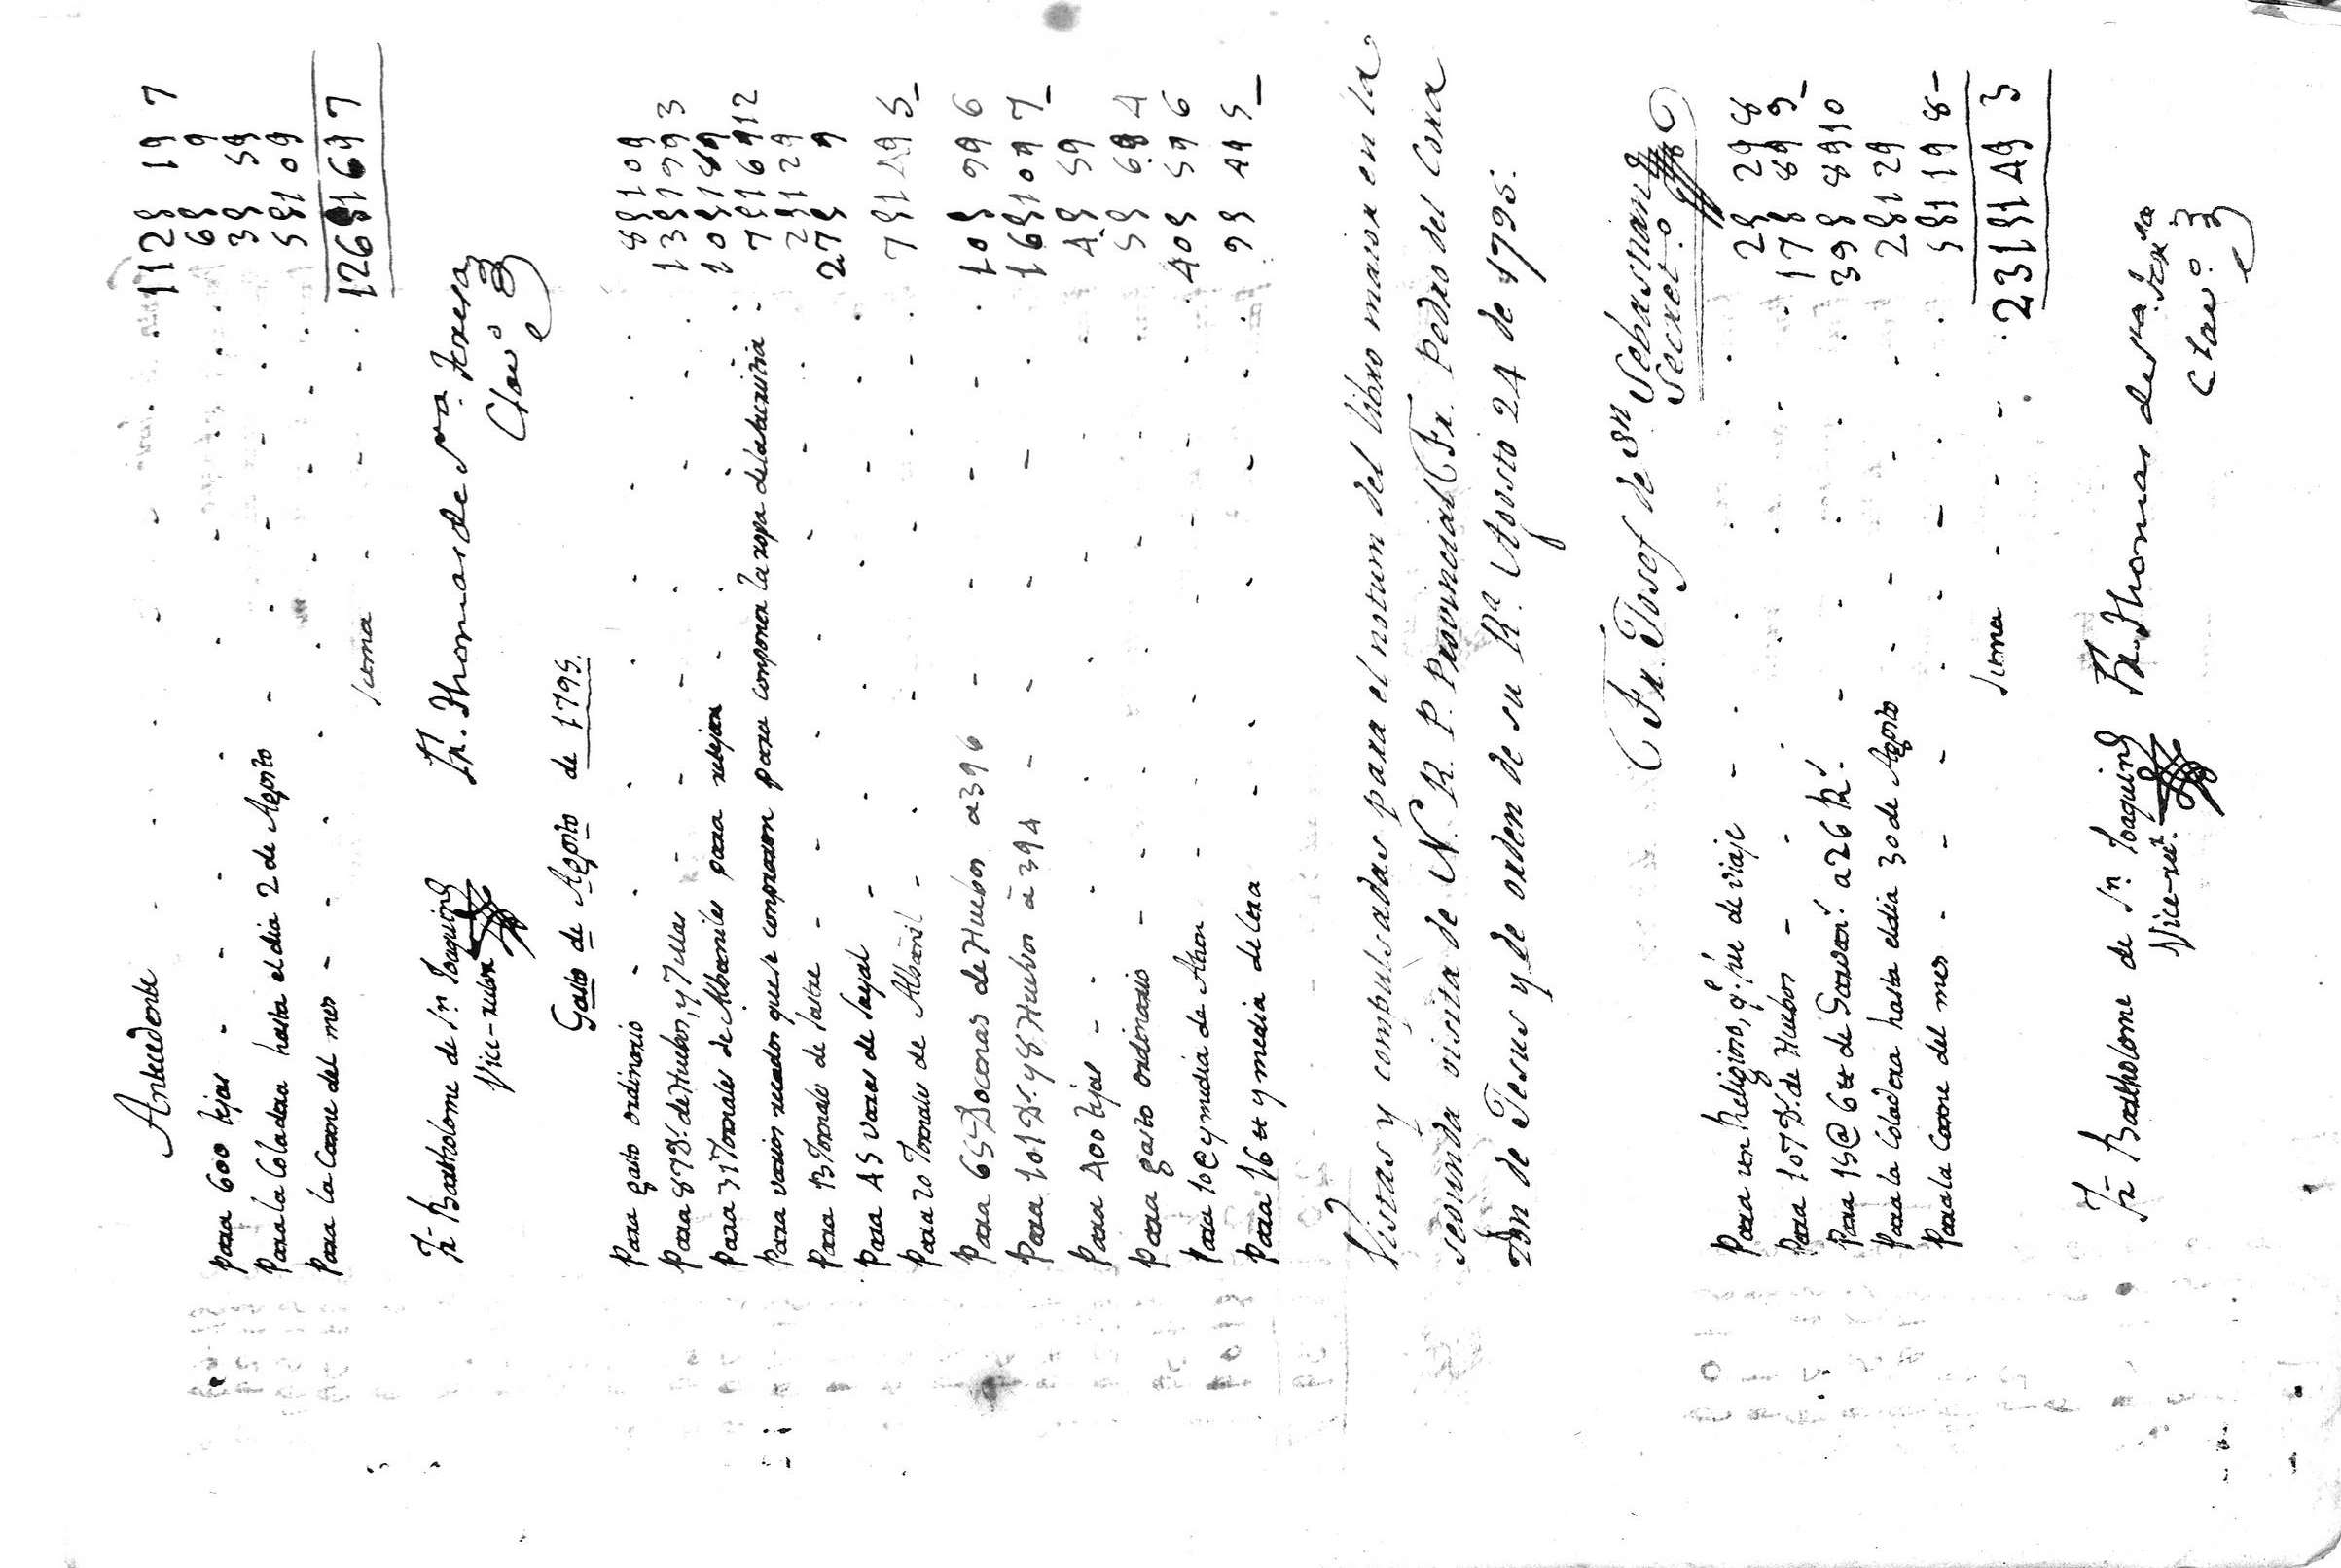 Antecedente - - - - 112 § 19 7
Para 600 tejas - - - - 6 § 9
Para la Coladera hasta el dia 2 de Agosto - - - 3 § 59
Para la Carne del mes - - - - 5 § 109
suma - - - 126 § 169 7
Fr. Bartholome de Sn. Joaquin
Vice-rector
Fr. Thomas de Sta. Teresa
Clavo.
Gasto de Agosto de 1795.
Para gasto ordinario - - - - 8 § 109
Para 87 Ds. de Huebos, y 7 - - - 13 § 199 3
Para 31 Jornales de Albaniles para retejar - - - 10 § 189
Para varios recados que se compraron para componer la ropa de la sacristia - 7 § 169 12
Para 13 Jornales de Sastre - - - 2 § 129
Para 45 varas de Sayal - - - 27 § 9
Para 20 Jornales de Albañil - - - 7 § 149 5
Para 65 Docenas de Huebos a 39 6 - - - 10 § 99 6
Para 101 Ds. y 8 Huebos à 39 4 - - - 16 § 109 7
Para 400 tejas - - - 4 § 59
Para gasto ordinario - - - 5 § 69 4
Para 10 @ y media de Atun - - - 40 § 59 6
Para 16 tt y media de Cera - - - 9 § 49 5
Vistas y compulsadas para el notum del libro maior en la
segunda visita de N. R. P. Provincial Fr. Pedro del Cora
zon de Jesus y de orden de su Ra. Agosto 24 de 1795.
Fr. Josef de Sn Sebastian
Secreto.
Para un Religioso, q. fue de viaje - - - 2 § 29 8
Para 107 Ds. de Huebos - - - 17 § 89 9
Para 15 @ 6 tt de Garvans. a 26 Rs. - - - 39 § 89 10
Para la Coladera hasta el dia 30 de Agosto - - - 2 § 129
Para la Carne del mes - - - 5 § 119 8
suma - - - 231 § 149 3
Fr. Bartholome de Sn. Joaquin
Vice-rect.
Fr. Thomas de Sta. Teresa
Clavo.